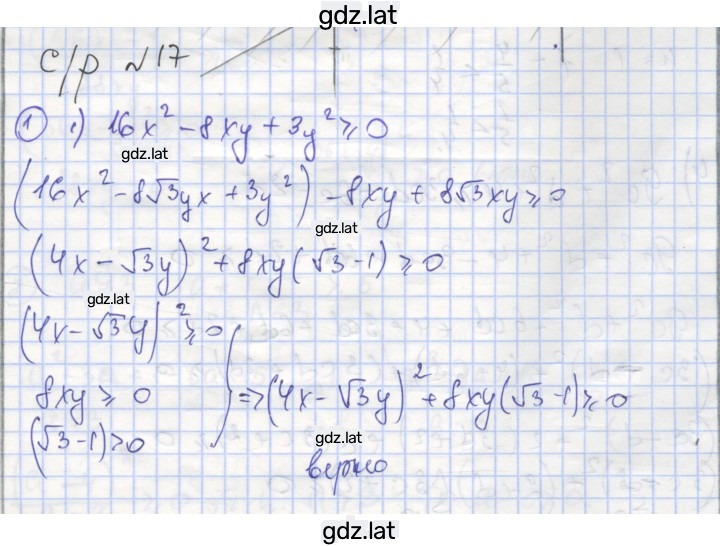 gdz.lat
с/р №17
① 1) 16x² - 8xy + 3y² ≥ 0
gdz.lat
(16x² - 8√3yx + 3y²) - 8xy + 8√3xy ≥ 0
gdz.lat
(4x - √3y)² + 8xy(√3 - 1) ≥ 0
gdz.lat
(4x - √3y)² ≥ 0
8xy ≥ 0
(√3 - 1) > 0
} => (4x - √3y)² + 8xy(√3 - 1) ≥ 0
gdz.lat
верно
gdz.lat